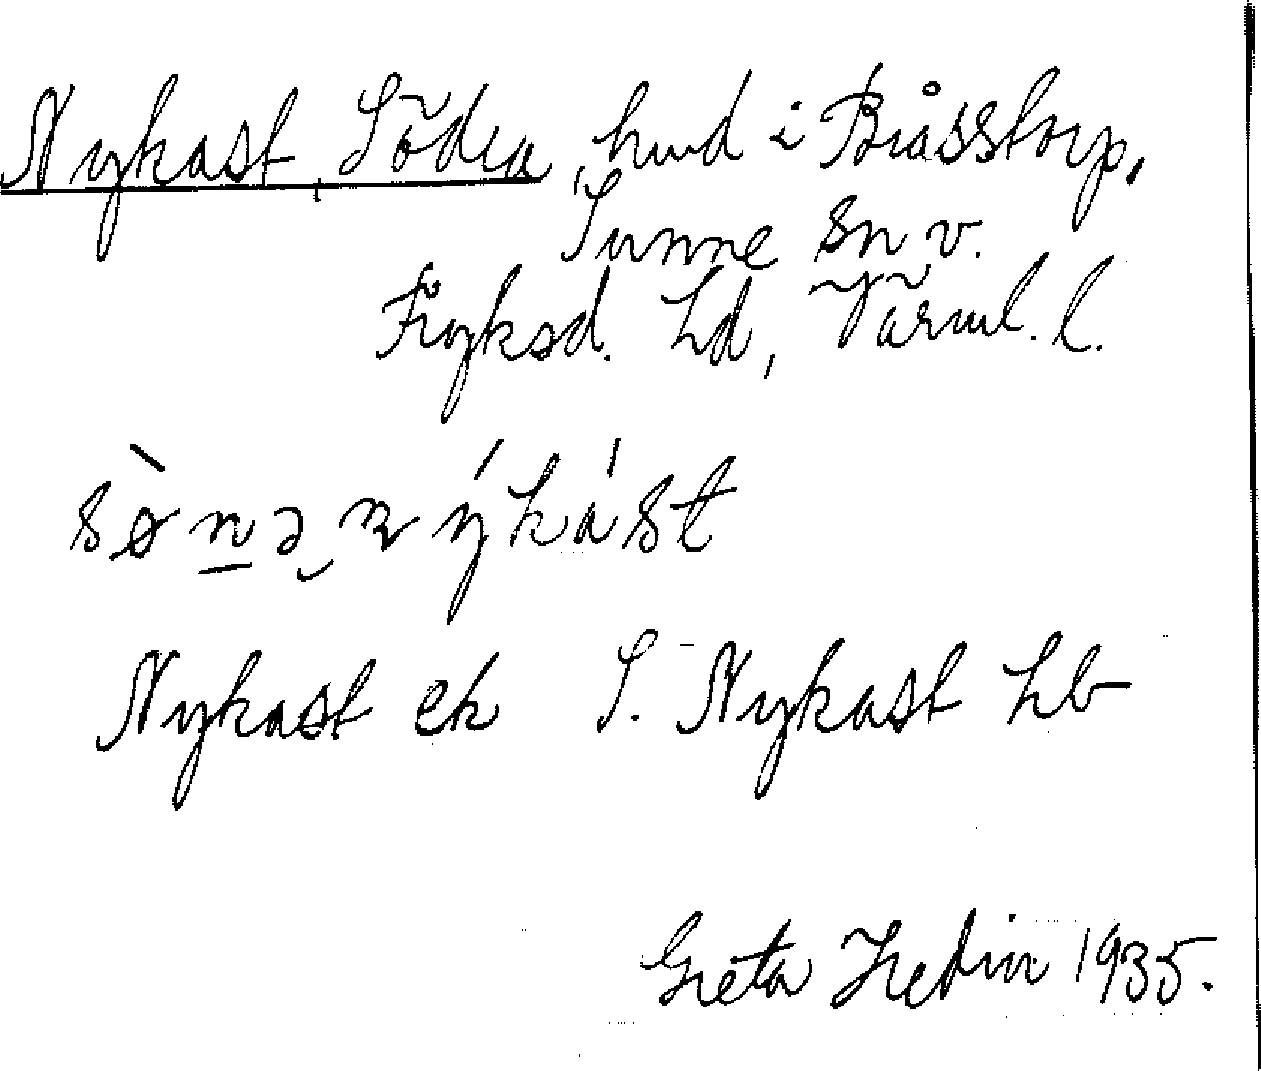 Nykast, Södra, hmd i Bråsstorp,
Sunne sn v.
Fryksd. hd, Värml. l.
sø̀nə nýkást
Nykast ek S. Nykast hb
Greta Hedin 1935.